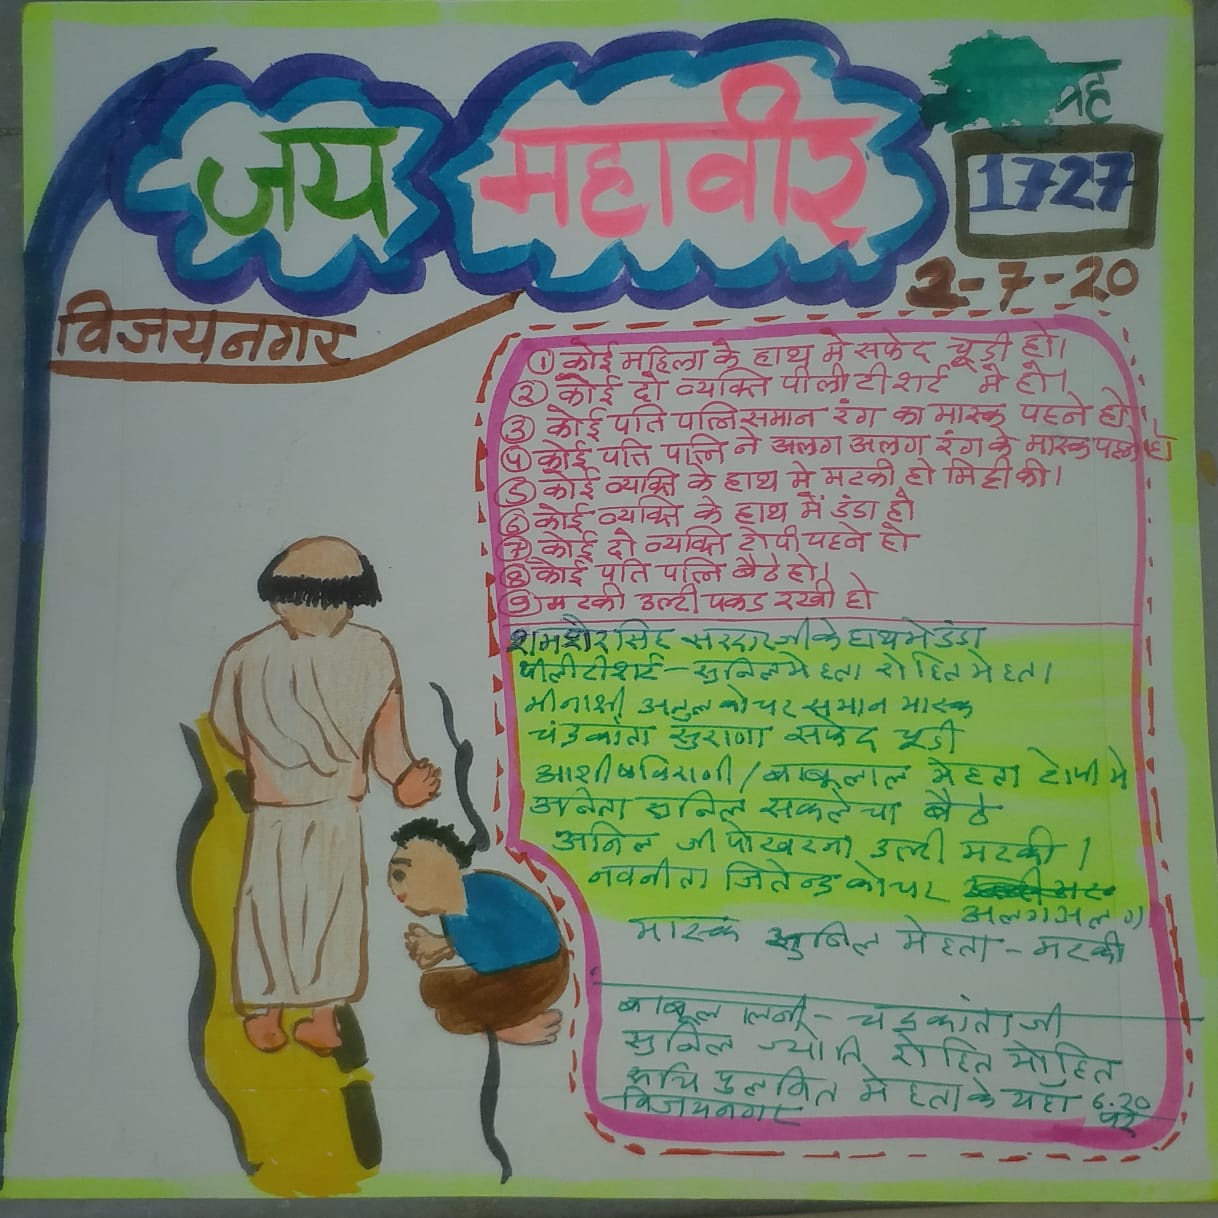 जय महावीर
1727
2-7-20
विजयनगर
① कोई महिला के हाथ मे सफेद चूड़ी हो।
② कोई दो व्यक्ति पीली टी शर्ट मे हो।
③ कोई पति पत्नि समान रंग का मास्क पहने हो।
④ कोई पति पत्नि ने अलग अलग रंग के मास्क पहने हो
⑤ कोई व्यक्ति के हाथ मे मटकी हो मिट्टी की।
⑥ कोई व्यक्ति के हाथ में डंडा हो
⑦ कोई दो व्यक्ति टोपी पहने हो
⑧ कोई पति पत्नि बैठे हो।
⑨ मटकी उल्टी पकड रखी हो
शमशेर सिंह सरदार जी के हाथ मे डंडा
पीली टी शर्ट - सुनिल मेहता रोहित मेहता।
मीनाक्षी अतुल कोचर समान मास्क
चंद्रकांता सुराणा सफेद चूडी
आशीष विराणी / बाबूलाल मेहता टोपी मे
अनिता सुनिल सकलेचा बैठे
अनिल जी पोखरना उल्टी मटकी।
नवनीता जितेन्द्र कोचर
अलग अलग
मास्क सुनिल मेहता - मटकी
बाबूलालजी - चंद्रकांता जी
सुनिल ज्योति रोहित मोहित
रूचि पुलकित मेहता के यहाँ 6.20
विजयनगर पर